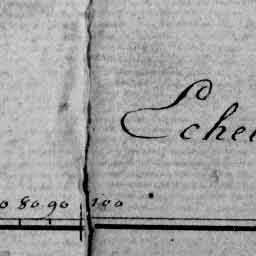 Eche
0 80 90 100